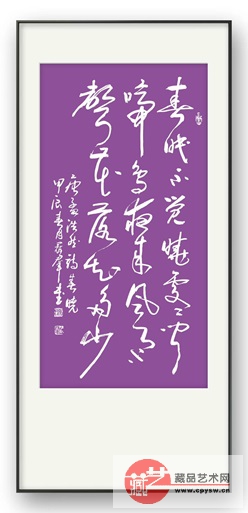 春眠不覺曉處處聞
啼鸟夜来风雨
聲花落知多少
唐孟浩然诗春晓
甲辰春月
藏艺
藏品艺术网
www.cpysw.cn